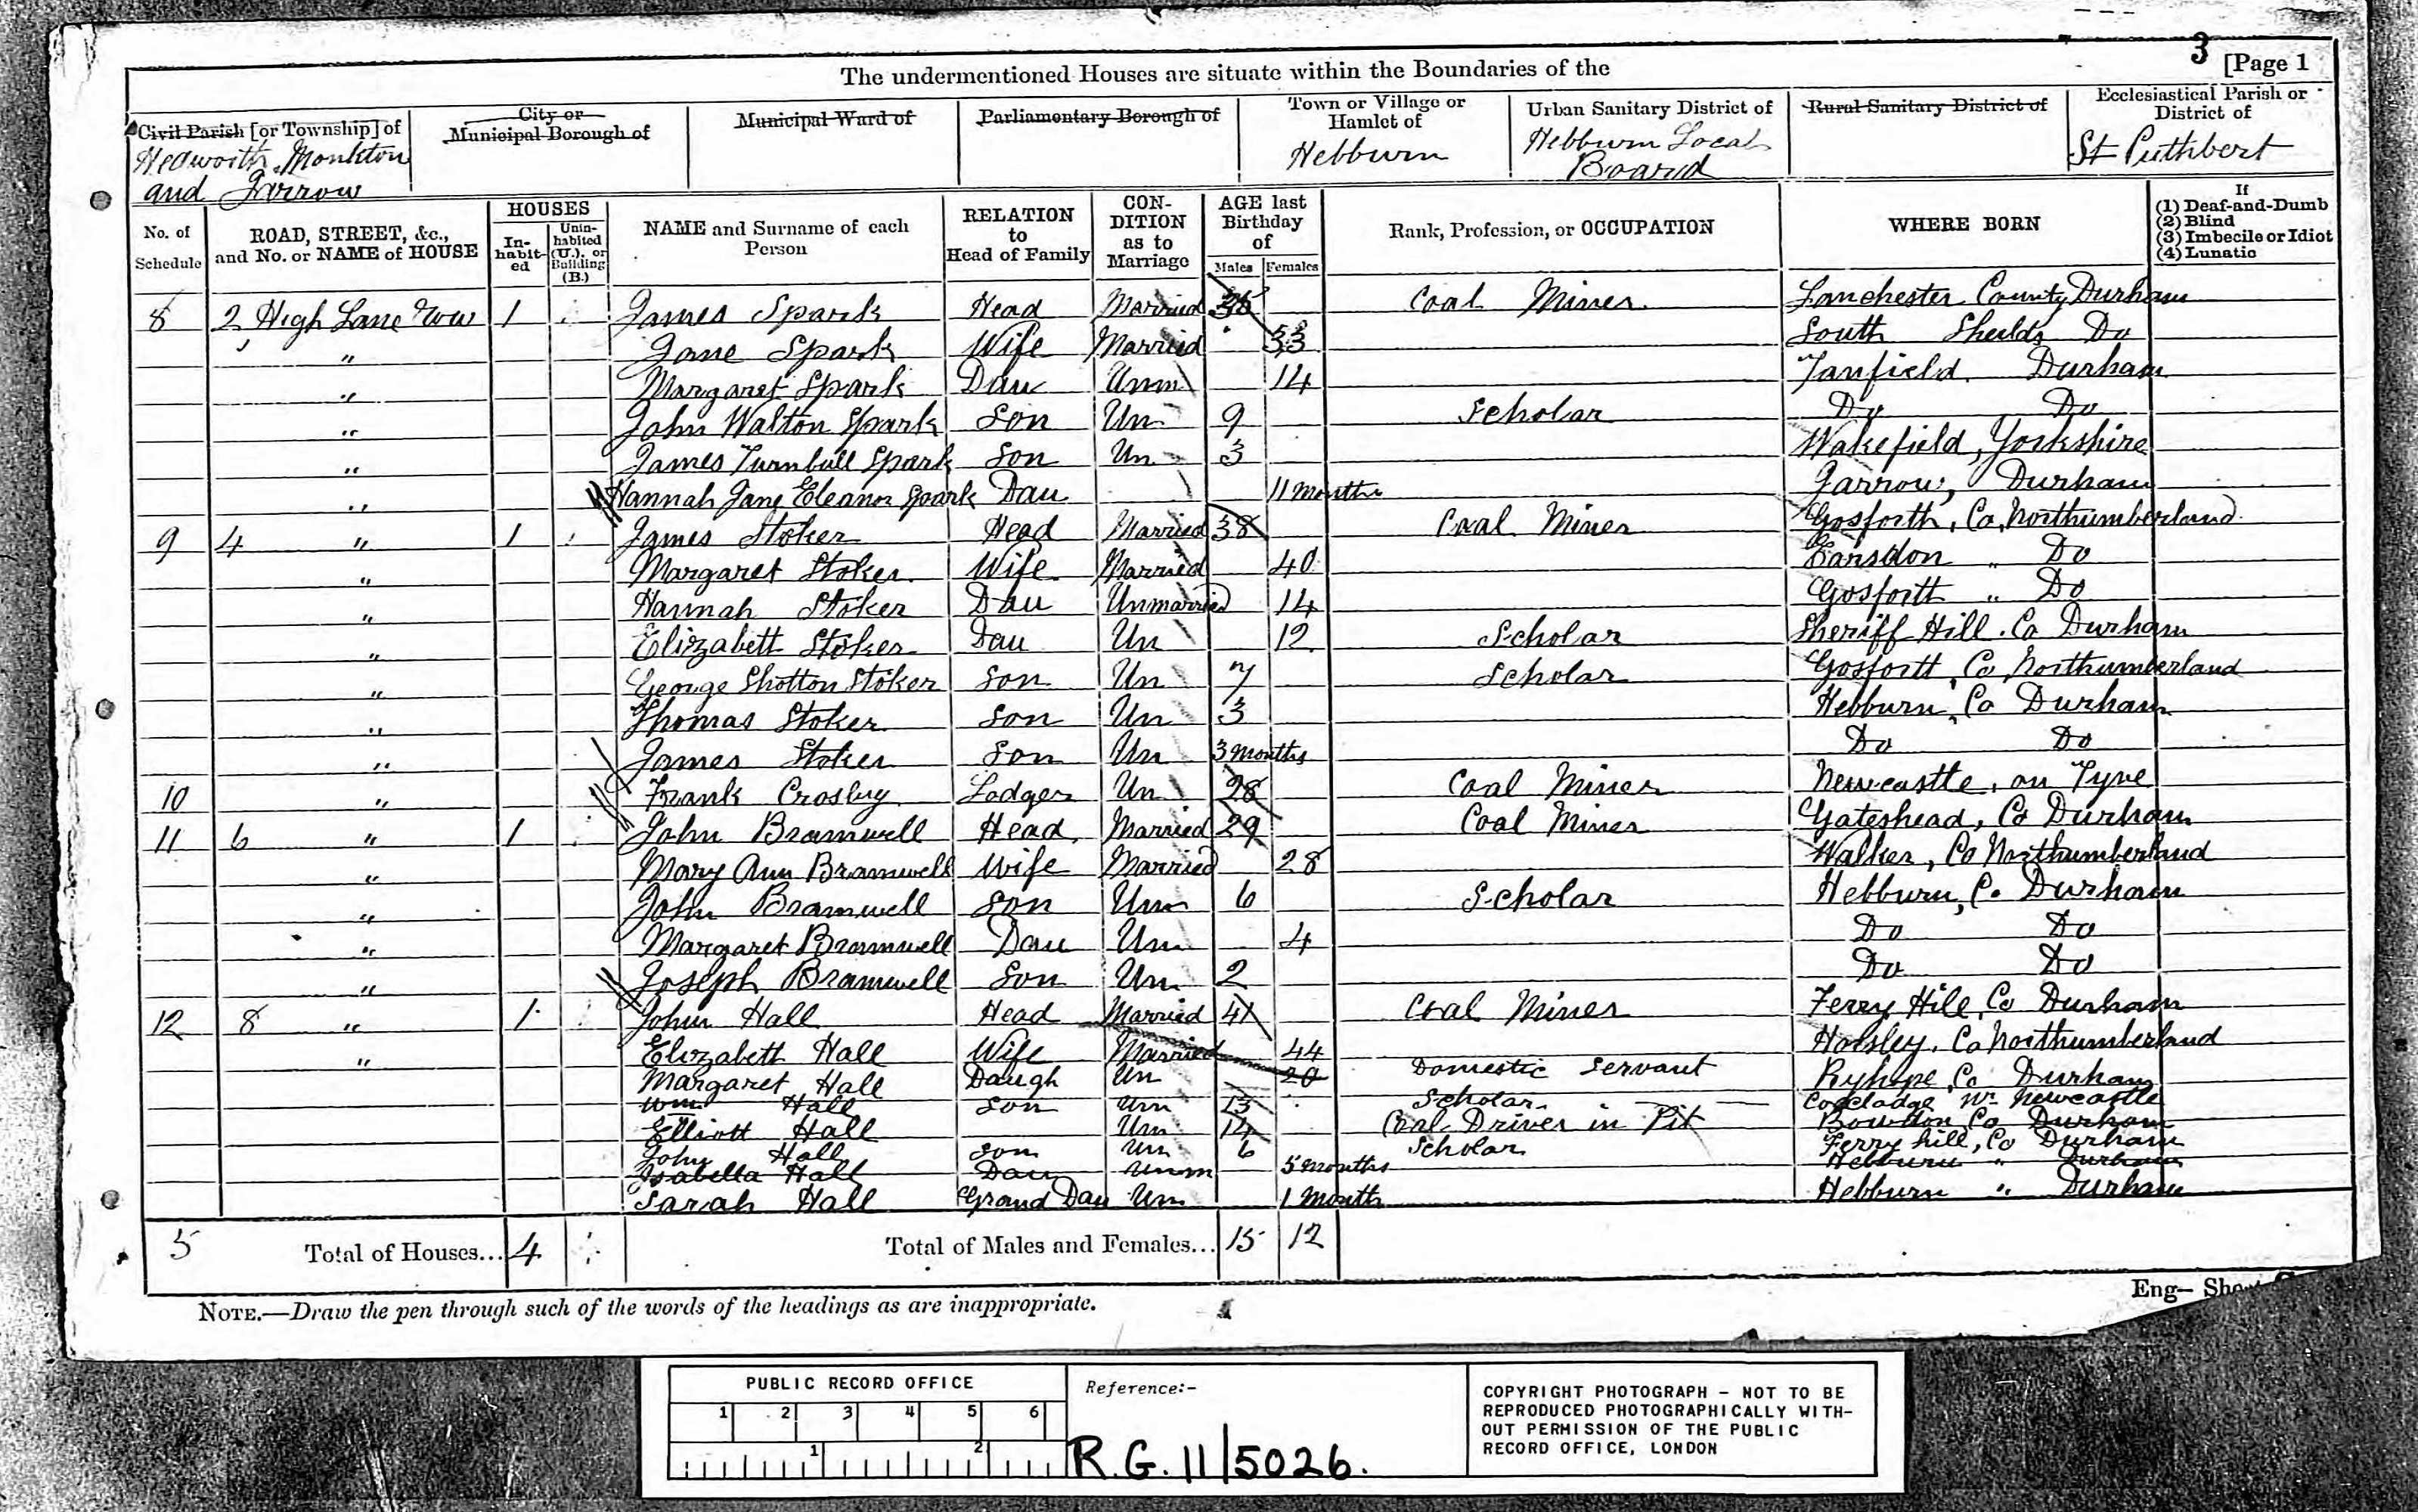 3 [Page 1
The undermentioned Houses are situate within the Boundaries of the
Civil Parish [or Township] of
Hedworth Monkton
and Jarrow
City or
Municipal Borough of
Municipal Ward of
Parliamentary Borough of
Town or Village or
Hamlet of
Hebburn
Urban Sanitary District of
Hebburn Local
Board
Rural Sanitary District of
Ecclesiastical Parish or
District of
St Cuthbert
No. of
Schedule
ROAD, STREET, &c.,
and No. or NAME of HOUSE
HOUSES
In-
habit-
ed
Unin-
habited
(U.), or
Building
(B.)
NAME and Surname of each
Person
RELATION
to
Head of Family
CON-
DITION
as to
Marriage
AGE last
Birthday
of
Males Females
Rank, Profession, or OCCUPATION
WHERE BORN
If
(1) Deaf-and-Dumb
(2) Blind
(3) Imbecile or Idiot
(4) Lunatic
8 2 High Lane Row 1 James Spark Head Married Coal Miner Lanchester County Durham
" Jane Spark Wife Married 33 South Shields Do
" Margaret Spark Dau Unm 14 Tanfield Durham
" John Walton Spark Son Un 9 Scholar Do Do
" James Turnbull Spark Son Un 3 Wakefield, Yorkshire
" Hannah Jane Eleanor Spark Dau 11 months Jarrow, Durham
9 4 " 1 James Stoker Head Married 38 Coal Miner Gosforth, Co Northumberland
" Margaret Stoker Wife Married 40 Earsdon " Do
" Hannah Stoker Dau Unmarried 14 Gosforth " Do
" Elizabeth Stoker Dau Un 12 Scholar Sheriff Hill. Co Durham
" George Shotton Stoker Son Un 7 Scholar Gosforth, Co Northumberland
" Thomas Stoker Son Un 3 Hebburn, Co Durham
" James Stoker Son Un 3 months Do Do
10 " Frank Crosby Lodger Un 28 Coal Miner Newcastle, on Tyne
11 6 " 1 John Bramwell Head Married 29 Coal Miner Gateshead, Co Durham
" Mary Ann Bramwell Wife Married 28 Walker, Co Northumberland
" John Bramwell Son Unm 6 Scholar Hebburn, Co Durham
" Margaret Bramwell Dau Un 4 Do Do
" Joseph Bramwell Son Un 2 Do Do
12 8 " 1 John Hall Head Married 41 Coal Miner Ferry Hill, Co Durham
" Elizabeth Hall Wife Married 44 Horsley, Co Northumberland
Margaret Hall Daugh Un 20 Domestic Servant Ryhope, Co Durham
Wm Hall Son Un 13 Scholar Nr Newcastle
Elliott Hall Un 14 Coal Driver in Pit Co Durham
John Hall Son Un 6 Scholar Ferry hill, Co Durham
Isabella Hall Dau Unm 5 months Hebburn " Durham
Sarah Hall Grand Dau Un 1 Month Hebburn " Durham
5 Total of Houses... 4 Total of Males and Females... 15 12
Eng— She
NOTE.—Draw the pen through such of the words of the headings as are inappropriate.
PUBLIC RECORD OFFICE
1 2 3 4 5 6
1 2
Reference:-
R.G. 11/5026.
COPYRIGHT PHOTOGRAPH - NOT TO BE
REPRODUCED PHOTOGRAPHICALLY WITH-
OUT PERMISSION OF THE PUBLIC
RECORD OFFICE, LONDON